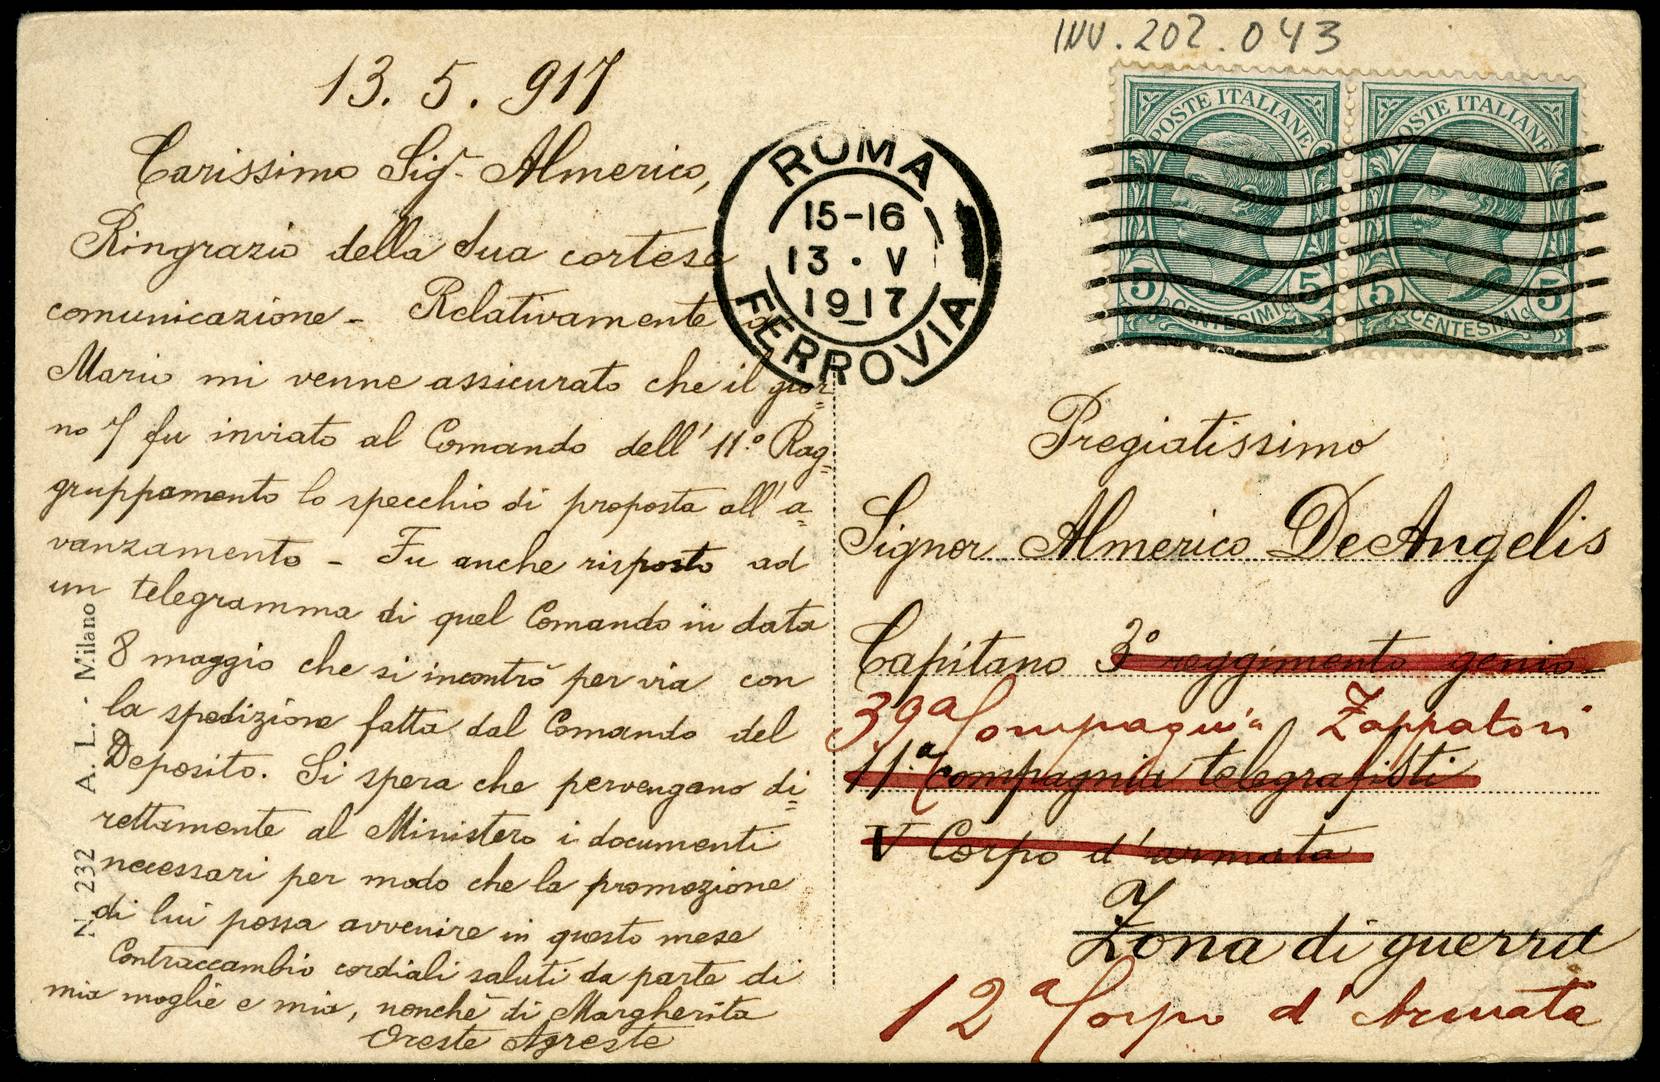 INV. 202.043
13. 5. 917
Carissimo Sigr Almerico,
Ringrazio della Sua cortese
comunicazione - Relativamente a
Mario mi venne assicurato che il gior=
no 7 fu inviato al Comando dell' 11.° Rag=
gruppamento lo specchio di proposta all' a=
vanzamento - Fu anche risposto ad
un telegramma di quel Comando in data
8 maggio che si incontrò per via con
la spedizione fatta dal Comando del
Deposito. Si spera che pervengano di=
rettamente al Ministero i documenti
necessari per modo che la promozione
di lui possa avvenire in questo mese
Contraccambio cordiali saluti da parte di
mia moglie e mia, nonchè di Margherita
Oreste Agreste
N. 232 A. L. - Milano
ROMA
15-16
13 · V
1917
FERROVIA
POSTE ITALIANE
5 CENTESIMI 5
POSTE ITALIANE
5 CENTESIMI 5
Pregiatissimo
Signor Almerico DeAngelis
Capitano 3° reggimento genio
39a Compagnia Zappatori
11.a compagnia telegrafisti
V Corpo d'armata
Zona di guerra
12a Corpo d' Armata